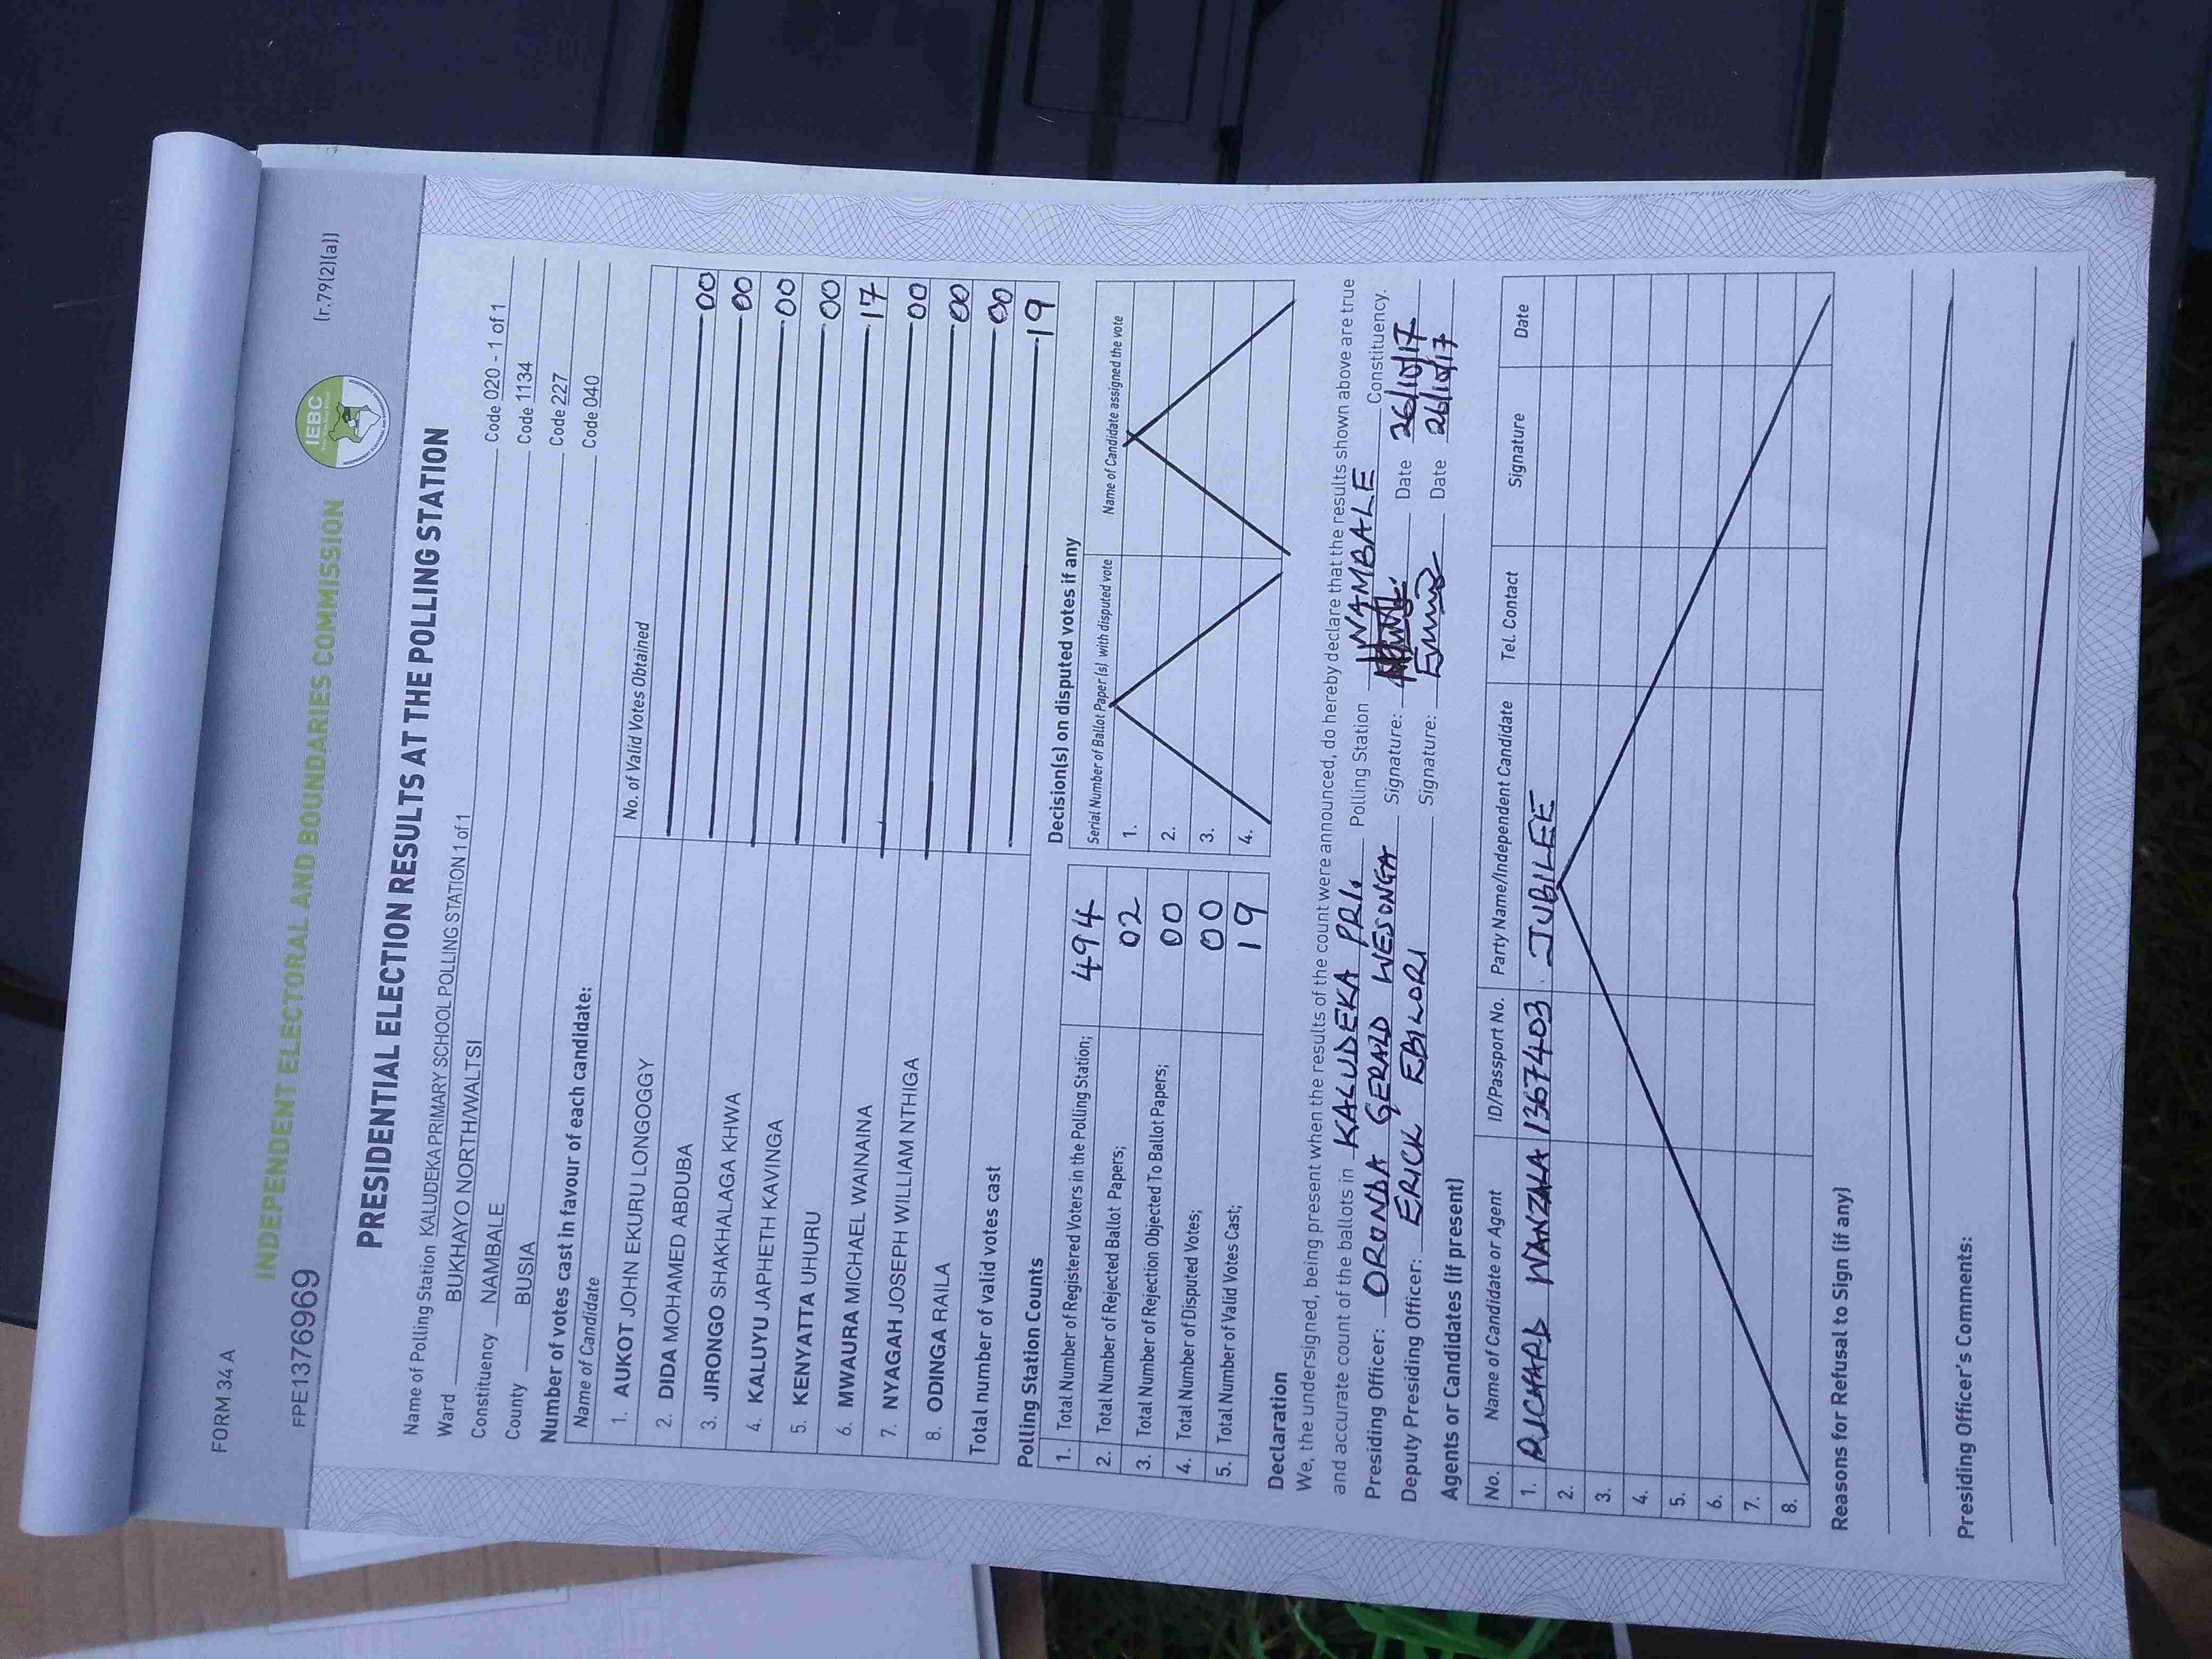 FORM 34 A
INDEPENDENT ELECTORAL AND BOUNDARIES COMMISSION
IEBC
(r.79(2)(a))
FPE1376969
PRESIDENTIAL ELECTION RESULTS AT THE POLLING STATION
Name of Polling Station KALUDEKA PRIMARY SCHOOL POLLING STATION 1 of 1 Code 020 - 1 of 1
Ward BUKHAYO NORTH/WALTSI Code 1134
Constituency NAMBALE Code 227
County BUSIA Code 040
Number of votes cast in favour of each candidate:
Name of Candidate No. of Valid Votes Obtained
1. AUKOT JOHN EKURU LONGOGGY 00
2. DIDA MOHAMED ABDUBA 00
3. JIRONGO SHAKHALAGA KHWA 00
4. KALUYU JAPHETH KAVINGA 00
5. KENYATTA UHURU 17
6. MWAURA MICHAEL WAINAINA 00
7. NYAGAH JOSEPH WILLIAM NTHIGA 00
8. ODINGA RAILA 00
Total number of valid votes cast 19
Polling Station Counts
1. Total Number of Registered Voters in the Polling Station; 494
2. Total Number of Rejected Ballot Papers; 02
3. Total Number of Rejection Objected To Ballot Papers; 00
4. Total Number of Disputed Votes; 00
5. Total Number of Valid Votes Cast; 19
Decision(s) on disputed votes if any
Serial Number of Ballot Paper (s) with disputed vote Name of Candidate assigned the vote
1.
2.
3.
4.
Declaration
We, the undersigned, being present when the results of the count were announced, do hereby declare that the results shown above are true
and accurate count of the ballots in KALUDEKA PRI. Polling Station NAMBALE Constituency.
Presiding Officer: ORONDA GERALD WESONGA Signature: Date 26/10/17
Deputy Presiding Officer: ERICK EBILORI Signature: Date 26/10/17
Agents or Candidates (if present)
No. Name of Candidate or Agent ID/Passport No. Party Name/Independent Candidate Tel. Contact Signature Date
1. RICHARD WANZALA 13667403 JUBILEE
2.
3.
4.
5.
6.
7.
8.
Reasons for Refusal to Sign (if any)
Presiding Officer's Comments: